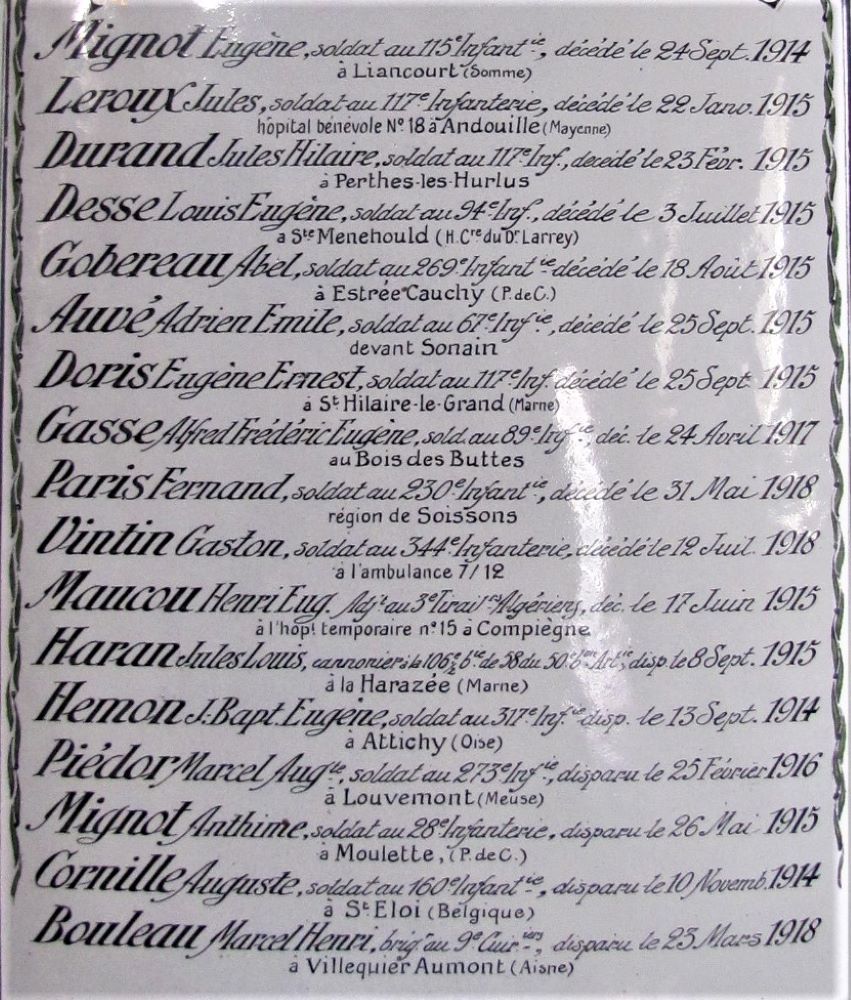 Mignot Eugène, soldat au 115e Infantie, décédé le 24 Sept. 1914
à Liancourt (Somme)
Leroux Jules, soldat au 117e Infanterie, décédé le 22 Janv. 1915
hôpital bénévole No 18 à Andouille (Mayenne)
Durand Jules Hilaire, soldat au 117e Inf., décédé le 23 Févr. 1915
à Perthes-les-Hurlus
Desse Louis Eugène, soldat au 94e Inf., décédé le 3 Juillet 1915
à Ste Menehould (H. Cre du Dr Larrey)
Gobereau Abel, soldat au 269e Infantie décédé le 18 Août 1915
à Estrée Cauchy (P. de C.)
Auvé Adrien Emile, soldat au 67e Infie, décédé le 25 Sept. 1915
devant Sonain
Doris Eugène Ernest, soldat au 117e Inf. décédé le 25 Sept 1915
à St Hilaire-le-Grand (Marne)
Gasse Alfred Frédéric Eugène, sold. au 89e Infie, déc. le 24 Avril 1917
au Bois des Buttes
Paris Fernand, soldat au 230e Infantie, décédé le 31 Mai 1918
région de Soissons
Vintin Gaston, soldat au 344e Infanterie, décédé le 12 Juil. 1918
à l'ambulance 7/12
Maucou Henri Eug. Adjt au 3e Tiraillrs Algériens, déc. le 17 Juin 1915
à l'hopt temporaire no 15 à Compiègne
Haran Jules Louis, cannonier à la 106e bie de 58 du 50e Artie, disp. le 8 Sept. 1915
à la Harazée (Marne)
Hemon J. Bapt. Eugène, soldat au 317e Infie disp. le 13 Sept. 1914
à Attichy (Oise)
Piédor Marcel Augte, soldat au 273e Infie, disparu le 25 Février 1916
à Louvemont (Meuse)
Mignot Anthime, soldat au 28e Infanterie, disparu le 26 Mai 1915
à Moulette, (P. de C.)
Cornille Auguste, soldat au 160e Infantie, disparu le 10 Novemb. 1914
à St Eloi (Belgique)
Bouleau Marcel Henri, brigr au 9e Cuiriers, disparu le 23 Mars 1918
à Villequier Aumont (Aisne)